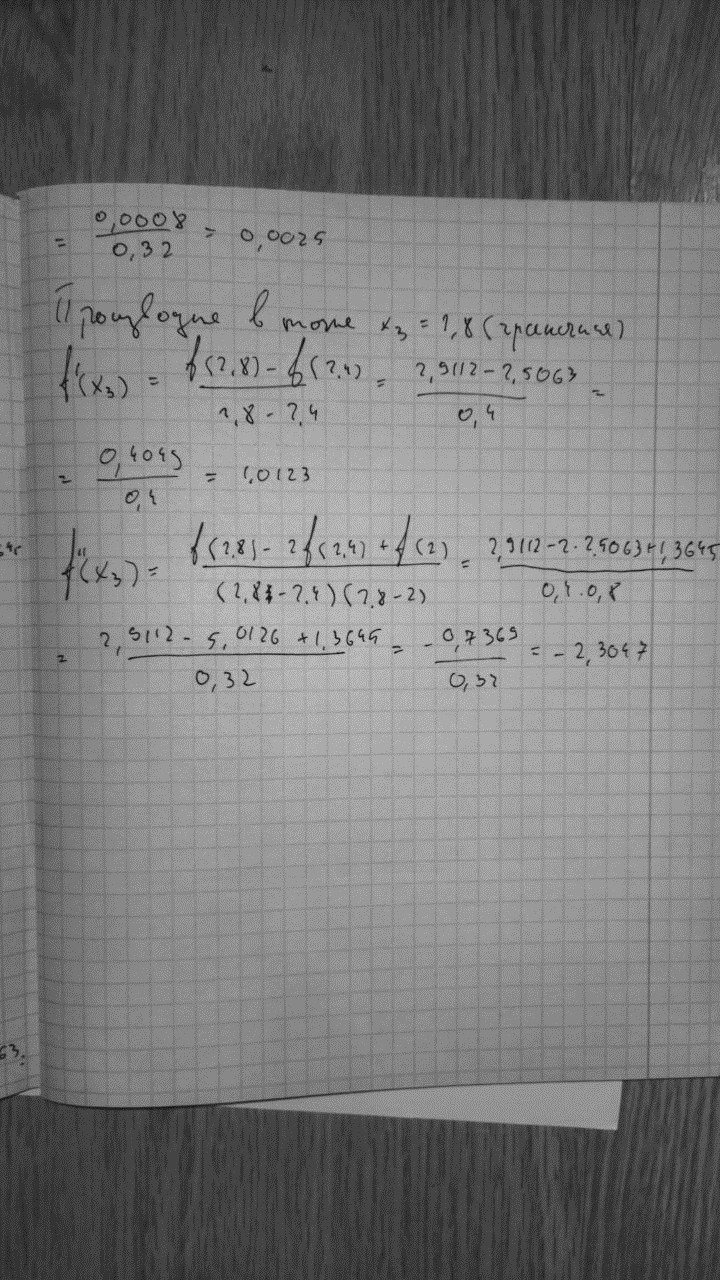 = 0,0008/0,32 = 0,0025
Производные в точке x₃ = 2,8 (граничная)
f'(x₃) = (f(2,8) - f(2,4))/(2,8 - 2,4) = (2,9112 - 2,5063)/0,4 =
= 0,4049/0,4 = 1,0123
f''(x₃) = (f(2,8) - 2f(2,4) + f(2))/((2,8 - 2,4)(2,8 - 2)) = (2,9112 - 2 · 2,5063 + 1,3645)/(0,4 · 0,8)
= (2,9112 - 5,0126 + 1,3645)/0,32 = - 0,7369/0,32 = - 2,3047
63: